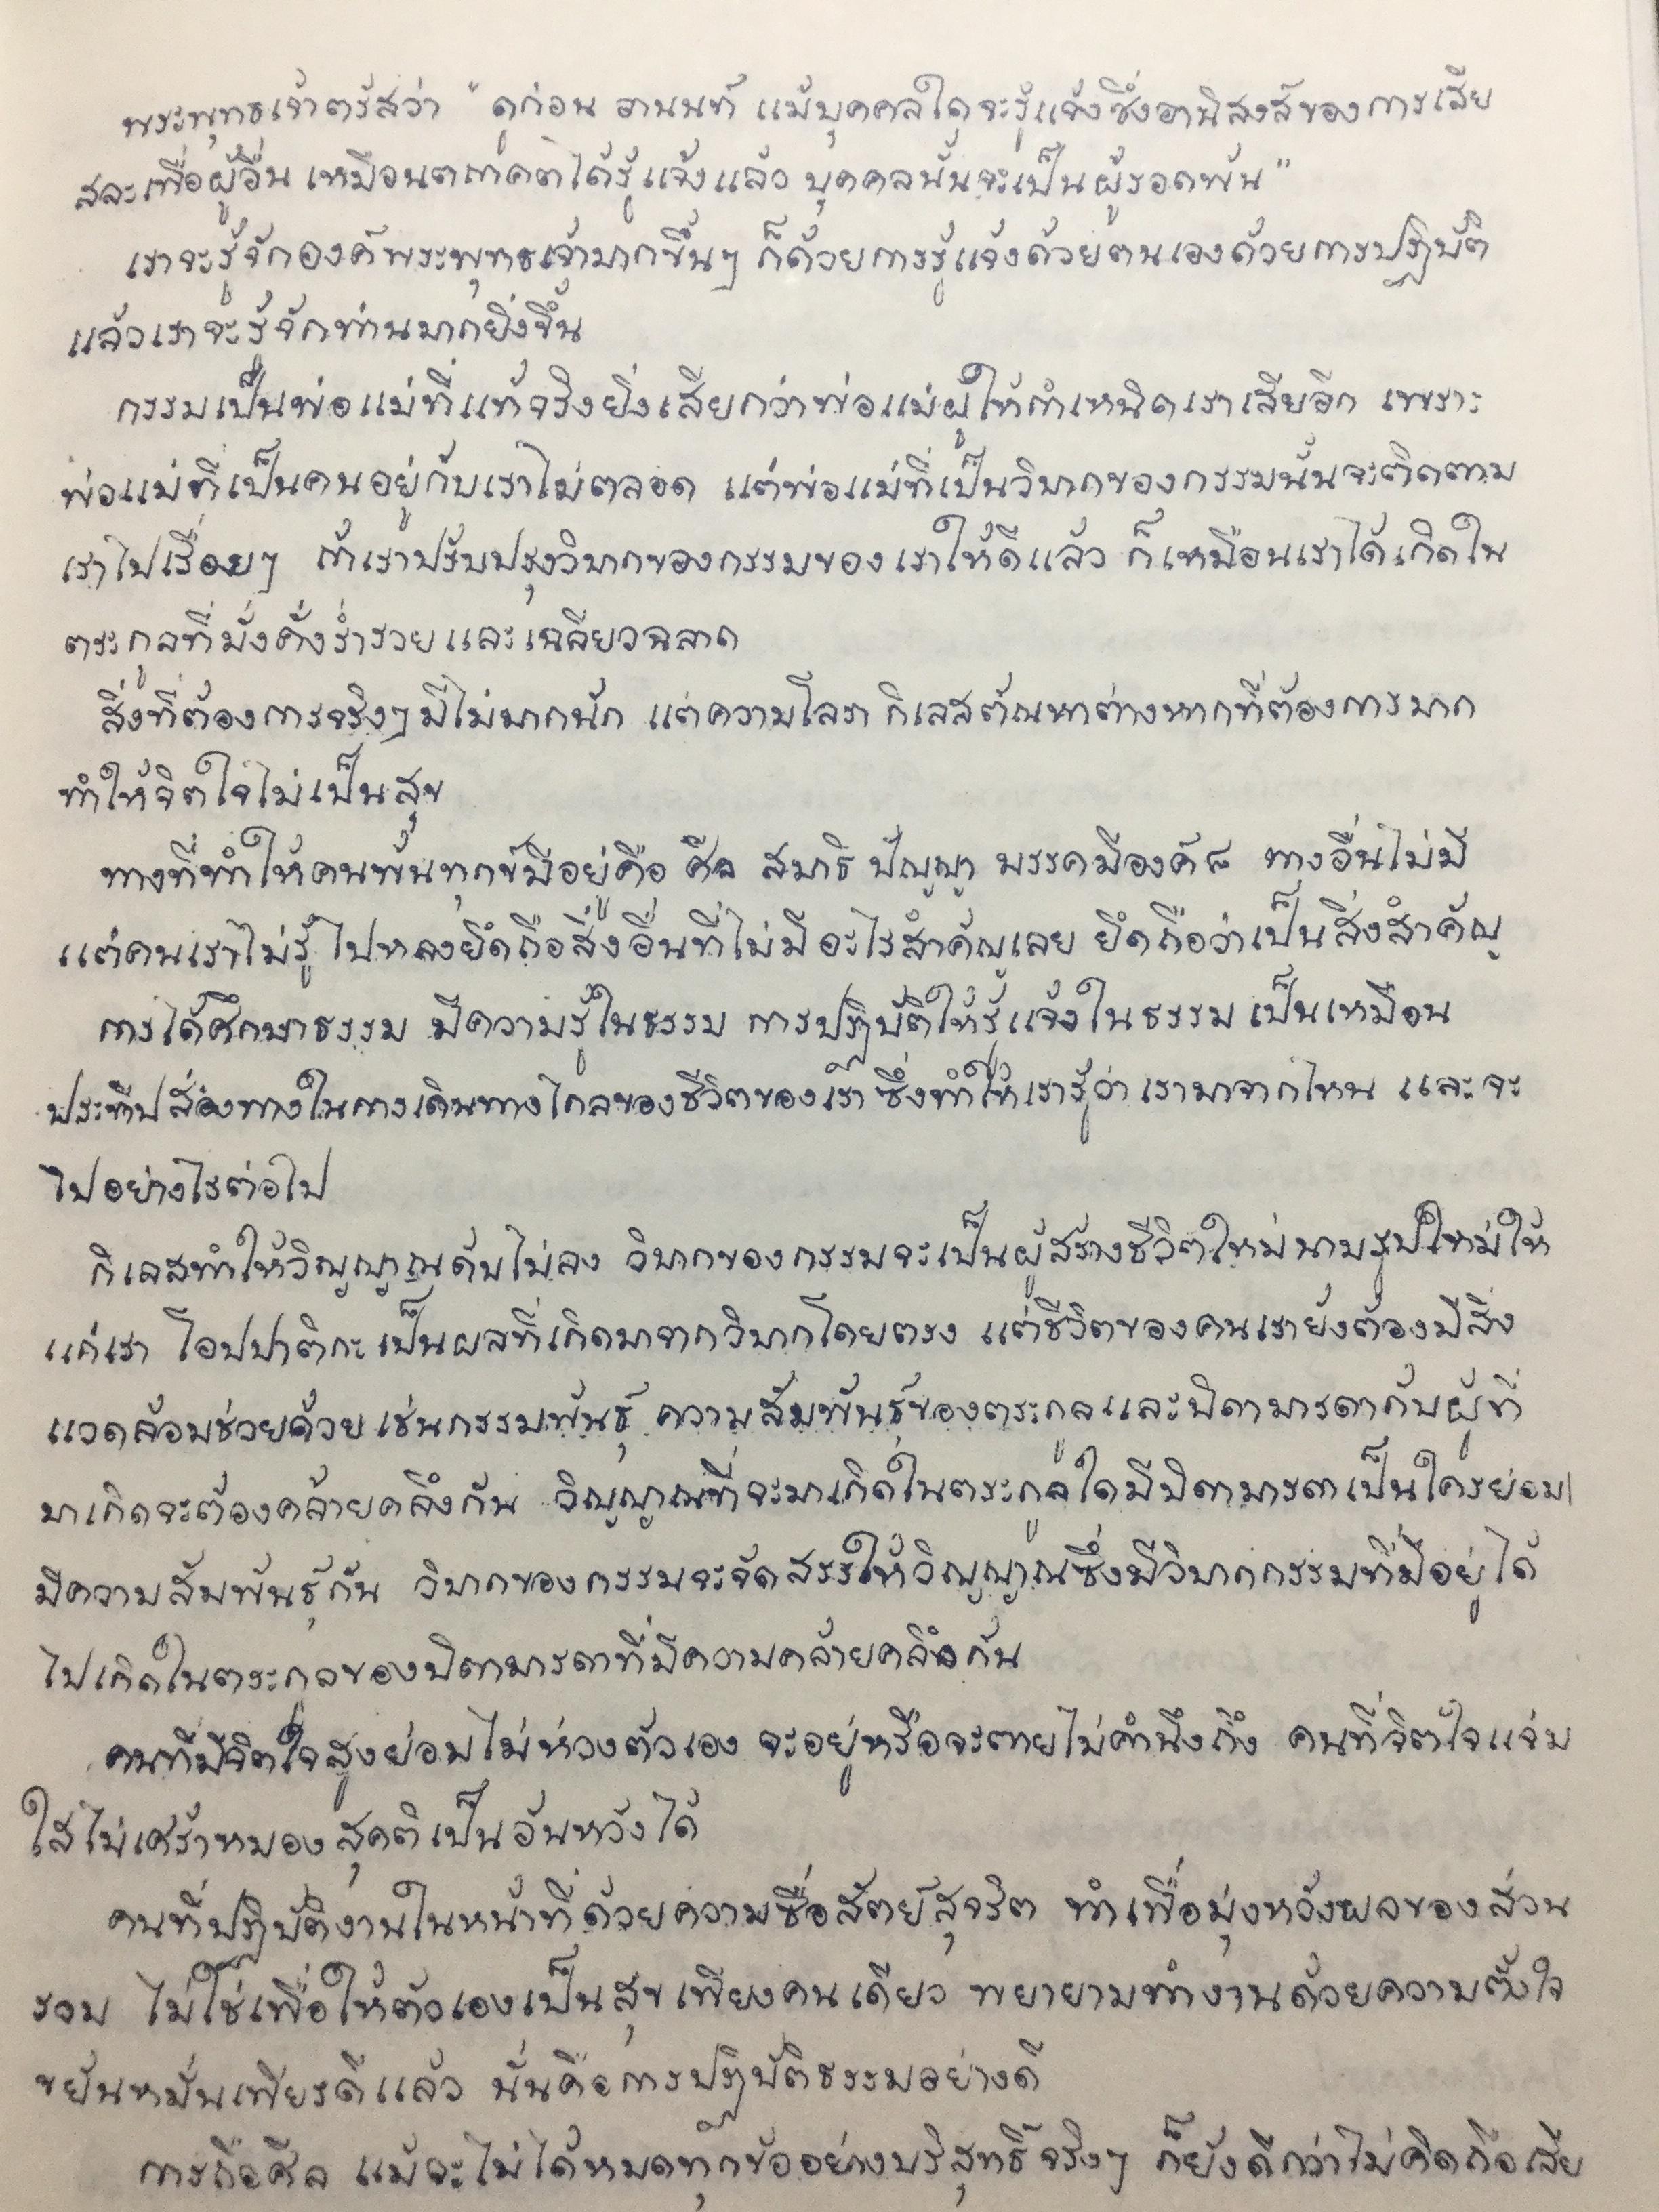 พระพุทธเจ้าตรัสว่า "ดูก่อน อานนท์ แม้บุคคลใดจะรู้แจ้งซึ่งอานิสงส์ของการเสีย
สละเพื่อผู้อื่น เหมือนตถาคตได้รู้แจ้งแล้ว บุคคลนั้นจะเป็นผู้รอดพ้น"
เราจะรู้จักองค์พระพุทธเจ้ามากขึ้นๆ ก็ด้วยการรู้แจ้งด้วยตนเองด้วยการปฏิบัติ
แล้วเราจะรู้จักท่านมากยิ่งขึ้น
กรรมเป็นพ่อแม่ที่แท้จริงยิ่งเสียกว่าพ่อแม่ผู้ให้กำเหนิดเราเสียอีก เพราะ
พ่อแม่ที่เป็นคนอยู่กับเราไม่ตลอด แต่พ่อแม่ที่เป็นวิบากของกรรมนั้นจะติดตาม
เราไปเรื่อยๆ ถ้าเราปรับปรุงวิบากของกรรมของเราให้ดีแล้ว ก็เหมือนเราได้เกิดใน
ตระกูลที่มั่งคั่งร่ำรวยและเฉลียวฉลาด
สิ่งที่ต้องการจริงๆมีไม่มากนัก แต่ความโลภ กิเลสตัณหาต่างหากที่ต้องการมาก
ทำให้จิตใจไม่เป็นสุข
ทางที่ทำให้คนพ้นทุกข์มีอยู่คือ ศีล สมาธิ ปัญญา มรรคมีองค์๘ ทางอื่นไม่มี
แต่คนเราไม่รู้ ไปหลงยึดถือสิ่งอื่นที่ไม่มีอะไรสำคัญเลย ยึดถือว่าเป็นสิ่งสำคัญ
การได้ศึกษาธรรม มีความรู้ในธรรม การปฏิบัติให้รู้แจ้งในธรรม เป็นเหมือน
ประทีปส่องทางในการเดินทางไกลของชีวิตของเรา ซึ่งทำให้เรารู้ว่า เรามาจากไหน และจะ
ไปอย่างไรต่อไป
กิเลสทำให้วิญญาณดับไม่ลง วิบากของกรรมจะเป็นผู้สร้างชีวิตใหม่นามรูปใหม่ให้
แก่เรา โอปปาติกะเป็นผลที่เกิดมาจากวิบากโดยตรง แต่ชีวิตของคนเรายังต้องมีสิ่ง
แวดล้อมช่วยด้วย เช่นกรรมพันธุ์ ความสัมพันธ์ของตระกูลและบิดามารดากับผู้ที่
มาเกิดจะต้องคล้ายคลึงกัน วิญญาณที่จะมาเกิดในตระกูลใดมีบิดามารดาเป็นใครย่อม
มีความสัมพันธ์กัน วิบากของกรรมจะจัดสรรให้วิญญาณซึ่งมีวิบากกรรมที่มีอยู่ได้
ไปเกิดในตระกูลของบิดามารดาที่มีความคล้ายคลึงกัน
คนที่มีจิตใจสูงย่อมไม่ห่วงตัวเอง จะอยู่หรือจะตายไม่คำนึงถึง คนที่จิตใจแจ่ม
ใสไม่เศร้าหมอง สุคติเป็นอันหวังได้
คนที่ปฏิบัติงานในหน้าที่ด้วยความซื่อสัตย์สุจริต ทำเพื่อมุ่งหวังผลของส่วน
รวม ไม่ใช่เพื่อให้ตัวเองเป็นสุขเพียงคนเดียว พยายามทำงานด้วยความตั้งใจ
ขยันหมั่นเพียรดีแล้ว นั่นคือการปฏิบัติธรรมอย่างดี
การถือศีล แม้จะไม่ได้หมดทุกข้ออย่างบริสุทธิ์จริงๆ ก็ยังดีกว่าไม่คิดถือเสีย